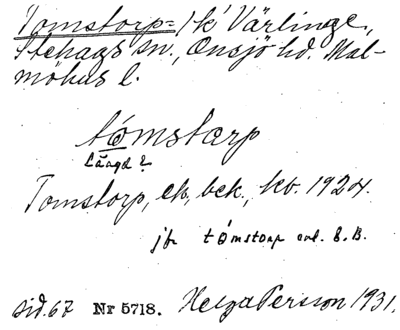 Tomstorp= /k Värlinge,
Stehags sn., Onsjö hd. Mal-
möhus l.
tómstarp
Långd?
Tomstorp, ek, bek., kb. 1924.
jfr tómstorp enl. E.B.
sid. 67 Nr 5718. Helga Persson 1931.